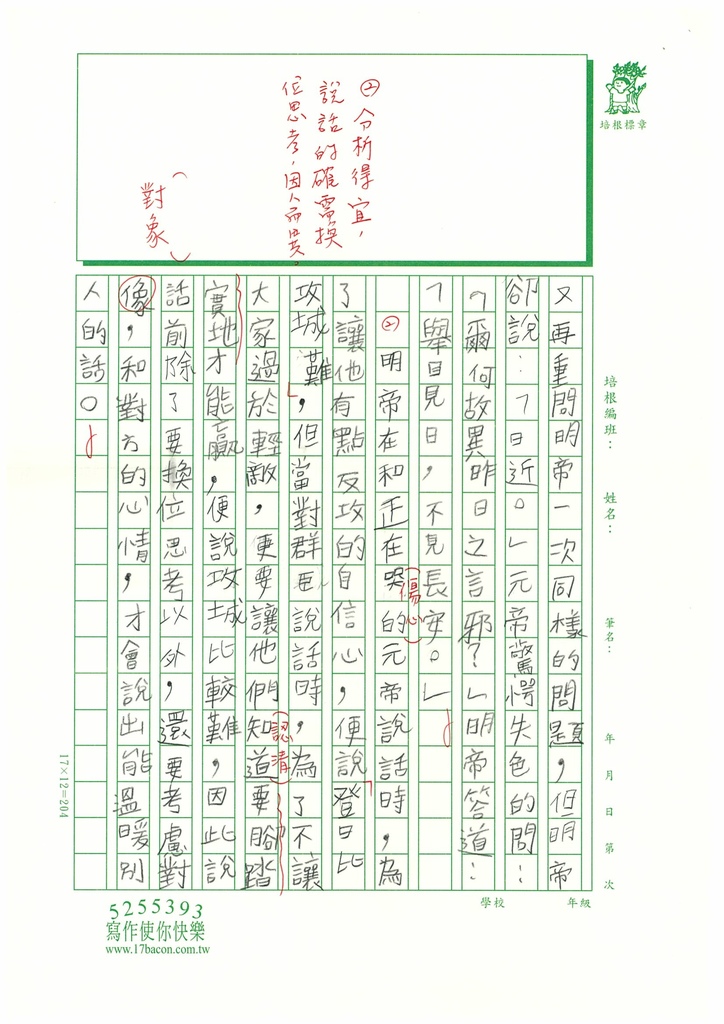 ②分析得宜，
說話的確需換
位思考，因人而異。
（對象）
培根標章
培根編班：
姓名：
筆名：
年 月 日 第 次
又再重問明帝一次同樣的問題，但明帝
卻說：「日近。」元帝驚愕失色的問：
「爾何故異昨日之言邪？」明帝答道：
「舉目見日，不見長安。」
②明帝在和正在哭的元帝說話時，為
（傷心）
了讓他有點反攻的自信心，便說「登日比
攻城難」，但當對群臣說話時，為了不讓
大家過於輕敵，更要讓他們知道要腳踏
（認清）
實地才能贏，便說攻城比較難，因此說
話前除了要換位思考以外，還要考慮對
像，和對方的心情，才會說出能溫暖別
人的話。
17×12=204
學校
年級
5255393
寫作使你快樂
www.17bacon.com.tw